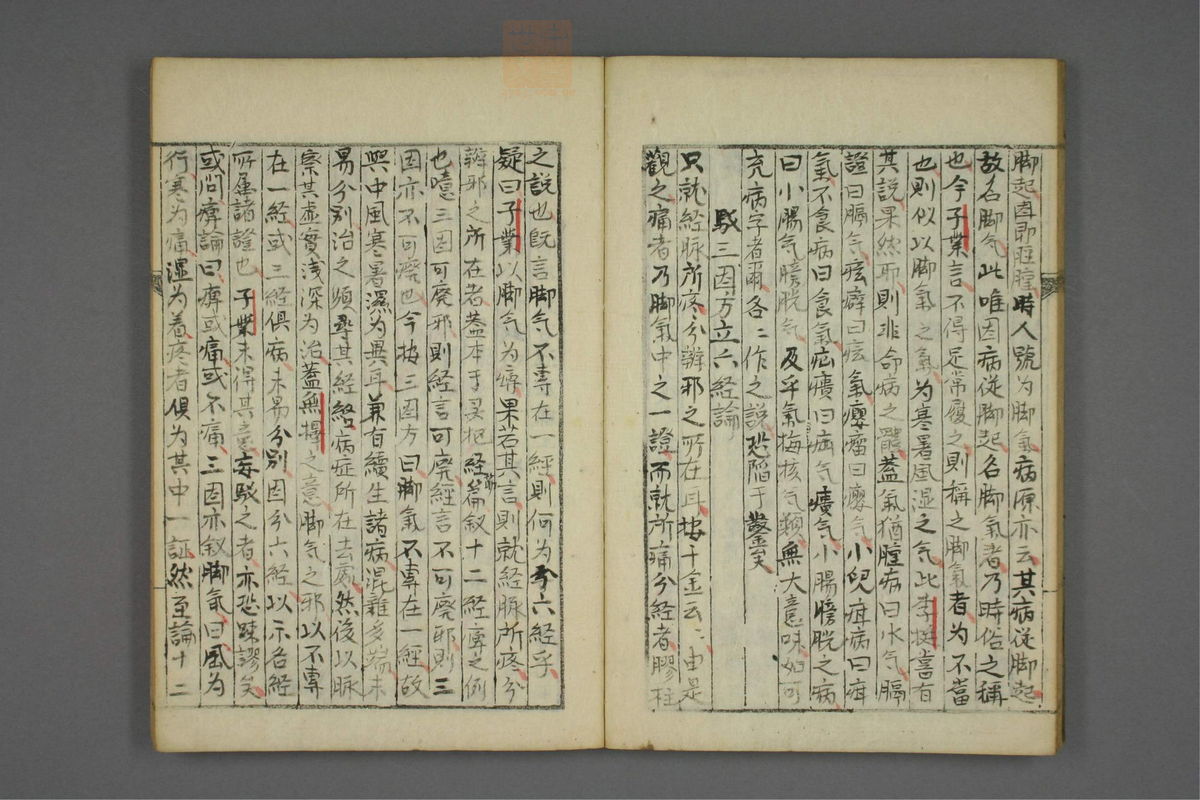 脚起因即脛腫時人號为脚氣病源亦云其病従脚起
故名脚气此唯因病従脚起名脚氣者乃時俗之稱
也今子業言不得足常履之則稱之脚氣者为不當
也則似以脚氣之氣为寒暑風湿之气此李梴嘗有
其説果然耶則非命病之體蓋氣猶腫病曰水气膈
證曰膈气痃癖曰痃氣癭瘤曰癭气小兒疳病曰疳
氣不食病曰食氣疝㿉曰疝气㿉气小腸膀胱之病
曰小腸气膀胱气及乎氣梅核气類無大意味如可
充病字者爾各〻作之説恐陥于鑿矣
駁三因方立六経論
只就経脉所疼分辨邪之所在耳按千金云〻由是
觀之痛者乃脚氣中之一證而就所痛分経者膠柱
之説也既言脚气不専在一經則何为分六経乎
疑曰子業以脚气为痹果若其言則就経脉所疼分
辨邪之所在者蓋本于 経篇叙十二経痹之例
也噫三因可廃邪則経言可廃経言不可廃邪則三
因亦不可廃也今按三因方曰脚氣不專在一経故
與中風寒暑濕为異耳兼有續生諸病混雜多端未
易分别治之須尋其経絡病症所在去處然後以脉
察其虚實浅深为治蓋無擇之意脚气之邪以不專
在一経或三経俱病未易分别因分六経以示各経
所属諸證也子業未得其之意妄駁之者亦恐踈謬矣
或问痹論曰痹或痛或不痛三因亦叙脚氣曰風为
行寒为痛湿为着疼者俱为其中一証然至論十二